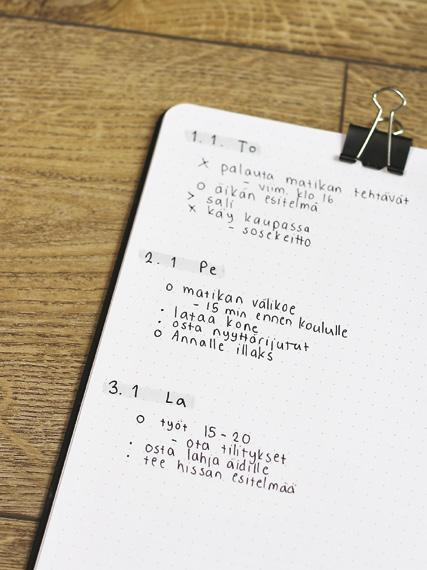 1. 1. To
x palauta matikan tehtävät
- viim. klo 16
o äikän esitelmä
> sali
x käy kaupassa
- sosekeitto
2. 1 Pe
o matikan välikoe
- 15 min ennen koululle
• lataa kone
• osta nyyttärijutut
o Annalle illaks
3. 1 La
o työt 15-20
- ota tilitykset
• osta lahja äidille
• tee hissan esitelmää